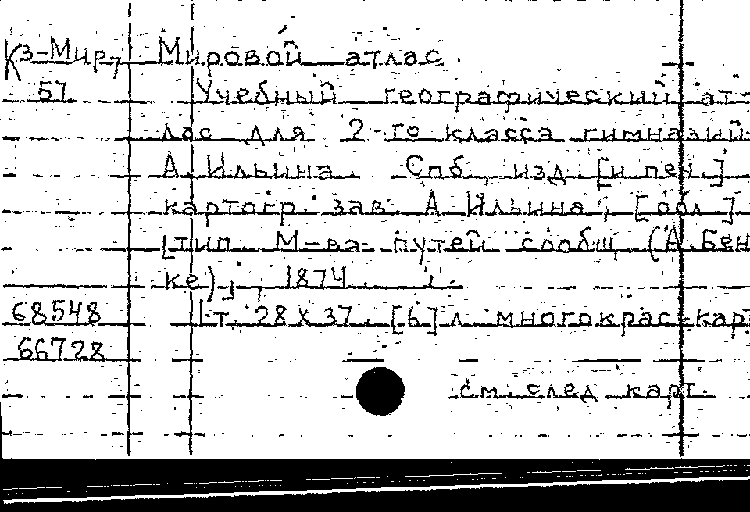 Кз-Мир, Мировой атлас.
57 Учебный географический ат-
лас для 2-го класса гимназий
А. Ильина. Спб., изд. [и печ.]
картогр. зав. А. Ильина, [обл.]
[тип. М-ва путей сообщ. (А. Бен-
ке)], 1874.
68548 1 т. 28 x 37. [6] л. многокрас. карт
66728
см. след. карт.